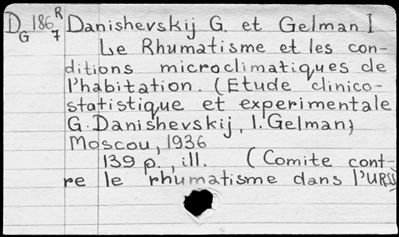 D G 186 R 7 Danishevskij G. et Gelman I
Le Rhumatisme et les con-
ditions microclimatiques de
l'habitation. (Etude clinico-
statistique et experimentale
G. Danishevskij, I. Gelman)
Moscou, 1936
139 p., ill. (Comite cont-
re le rhumatisme dans l'URSS